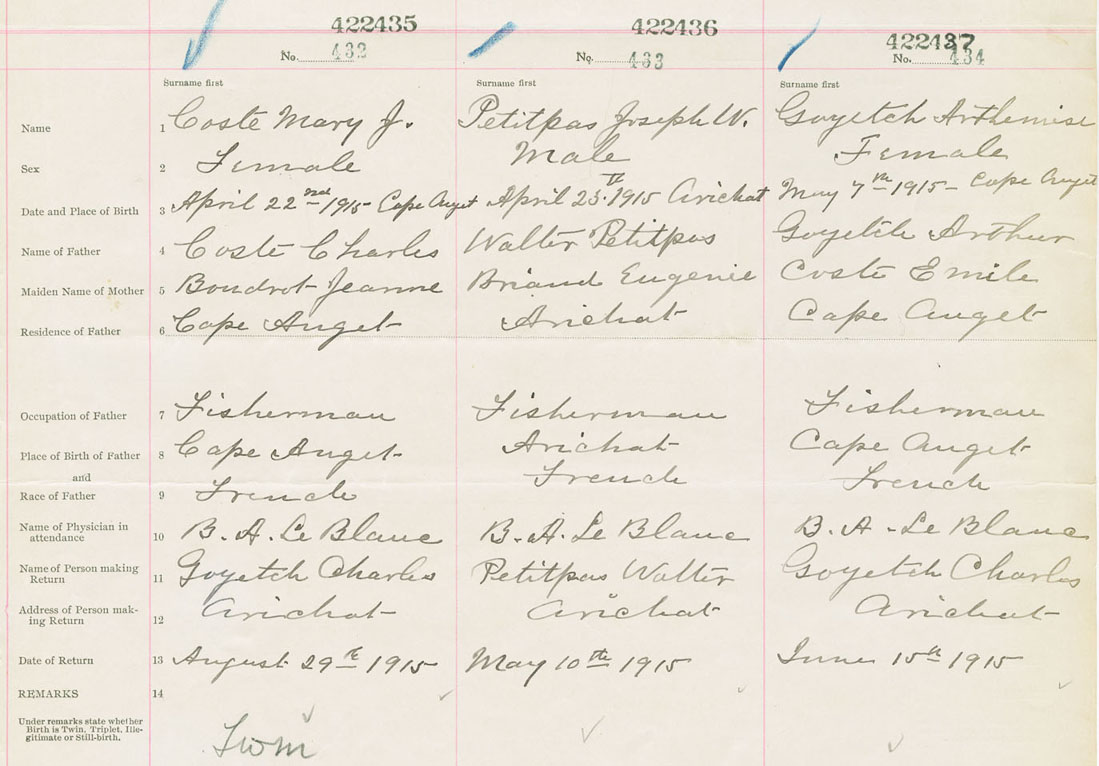 422435 422436 422437
No. 432 No. 433 No. 434
Surname first Surname first Surname first
Name 1 Coste Mary J. Petitpas Joseph W. Goyetch Arthemise
Sex 2 Female Male Female
Date and Place of Birth 3 April 22nd 1915 Cape Auget April 25th 1915 Arichat May 7th 1915 - Cape Auget
Name of Father 4 Coste Charles Walter Petitpas Goyetch Arthur
Maiden Name of Mother 5 Boudrot Jeanne Briand Eugenie Coste Emile
Residence of Father 6 Cape Auget Arichat Cape Auget
Occupation of Father 7 Fisherman Fisherman Fisherman
Place of Birth of Father 8 Cape Auget Arichat Cape Auget
and
Race of Father 9 French French French
Name of Physician in
attendance 10 B. A. Le Blanc B. A. Le Blanc B. A. Le Blanc
Name of Person making
Return 11 Goyetch Charles Petitpas Walter Goyetch Charles
Address of Person mak-
ing Return 12 Arichat Arichat Arichat
Date of Return 13 August 29th 1915 May 10th 1915 June 15th 1915
REMARKS 14
Under remarks state whether
Birth is Twin, Triplet, Ille-
gitimate or Still-birth.
Twin